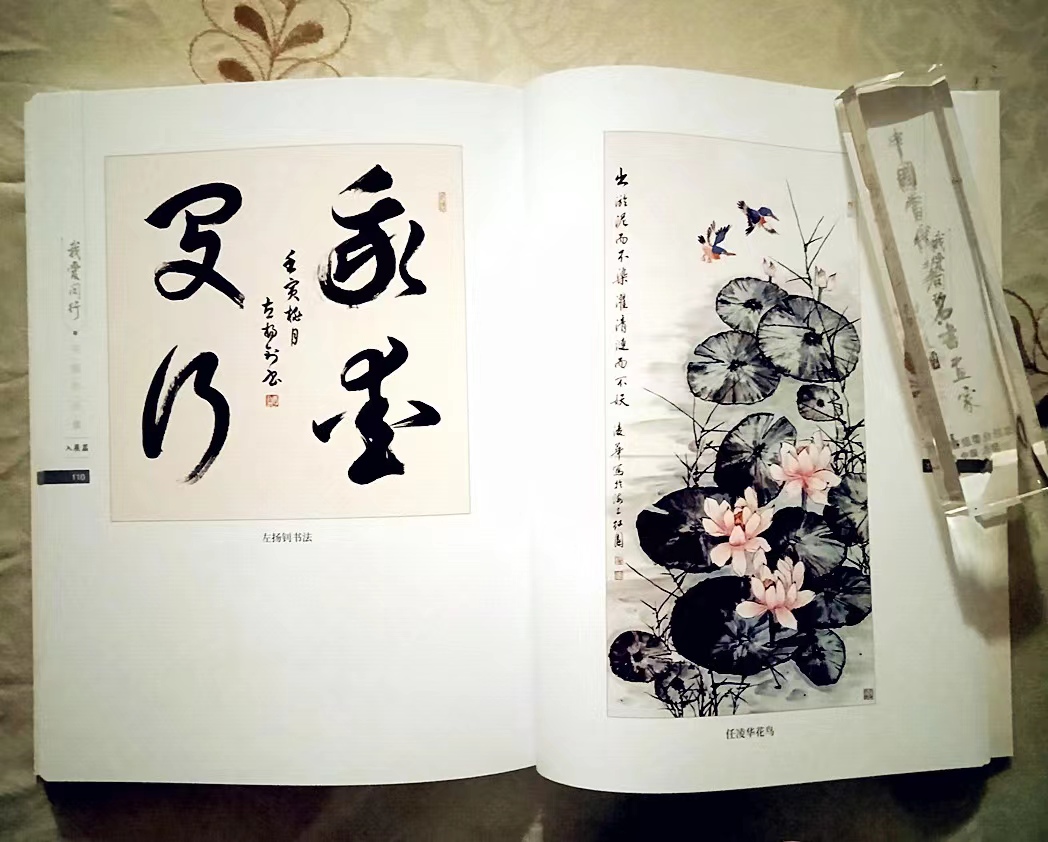 我爱闵行
入展篇
110
我爱
闵行
壬寅梅月
左扬钊书
左扬钊书法
出淤泥而不染濯清涟而不妖
凌华写于海上红园
任凌华花鸟
中国当代著名书画家